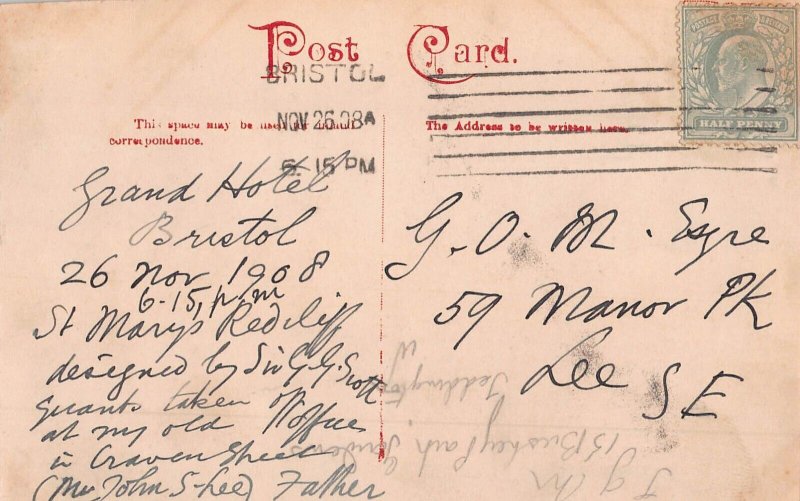 Post Card.
BRISTOL
NOV 26 08
6. 15 PM
HALF PENNY
This space may be used for
correspondence.
The Address to be written here.
Grand Hotel
Bristol
26 Nov 1908
6-15, p.m
St Marys Redcliff
designed by Sir G G Scott
taken of
at my old office
in Craven Street
(Mr John S-Lee) Father
G. O. M. Esqre
59 Manor Pk
Lee SE
Teddington
15 Bushey Park Gardens